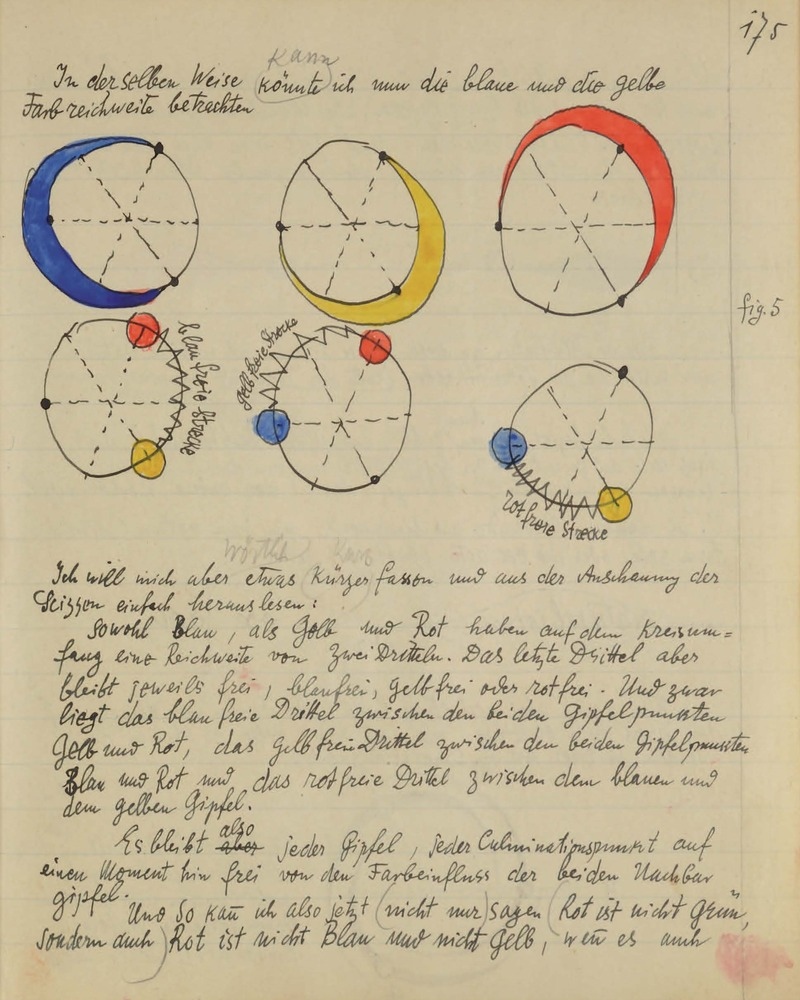 175
kann
In derselben Weise (könnte) ich nun die blaue und die gelbe
Farbreichweite betrachten
fig. 5
blaufreie Strecke
gelbfreie Strecke
rotfreie Strecke
Ich will mich aber etwas kürzer fassen und aus der Anschauung der
Scizzen einfach herauslesen:
Sowohl Blau, als Gelb und Rot haben auf dem Kreisum=
fang eine Reichweite von zwei Dritteln. Das letzte Drittel aber
bleibt jeweils frei, blaufrei, gelbfrei oder rotfrei. Und zwar
liegt das blaufreie Drittel zwischen den beiden Gipfelpunkten
Gelb und Rot, das gelbfreie Drittel zwischen den beiden Gipfelpunkten
Blau und Rot und das rotfreie Drittel zwischen dem blauen und
dem gelben Gipfel.
also
Es bleibt aber jeder Gipfel, jeder Culminationspunkt auf
einen Moment hin frei von den Farbeinfluss der beiden Nachbar
gipfel.
Und so kañ ich also jetzt (nicht nur) sagen (Rot ist nicht Grün,
sondern auch) Rot ist nicht Blau und nicht Gelb, weñ es auch